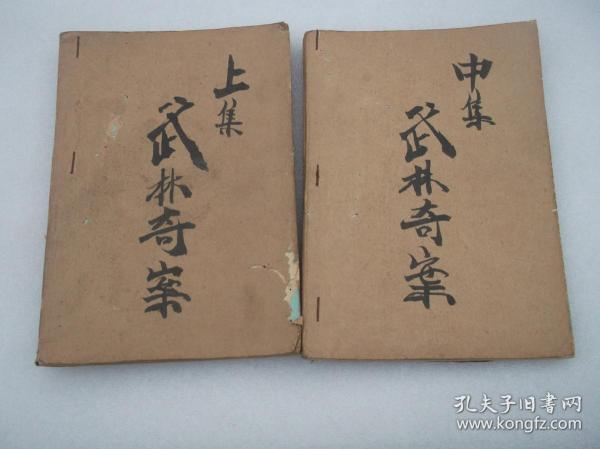 上集
武林奇案
中集
武林奇案
孔夫子旧书网
www.kongfz.com